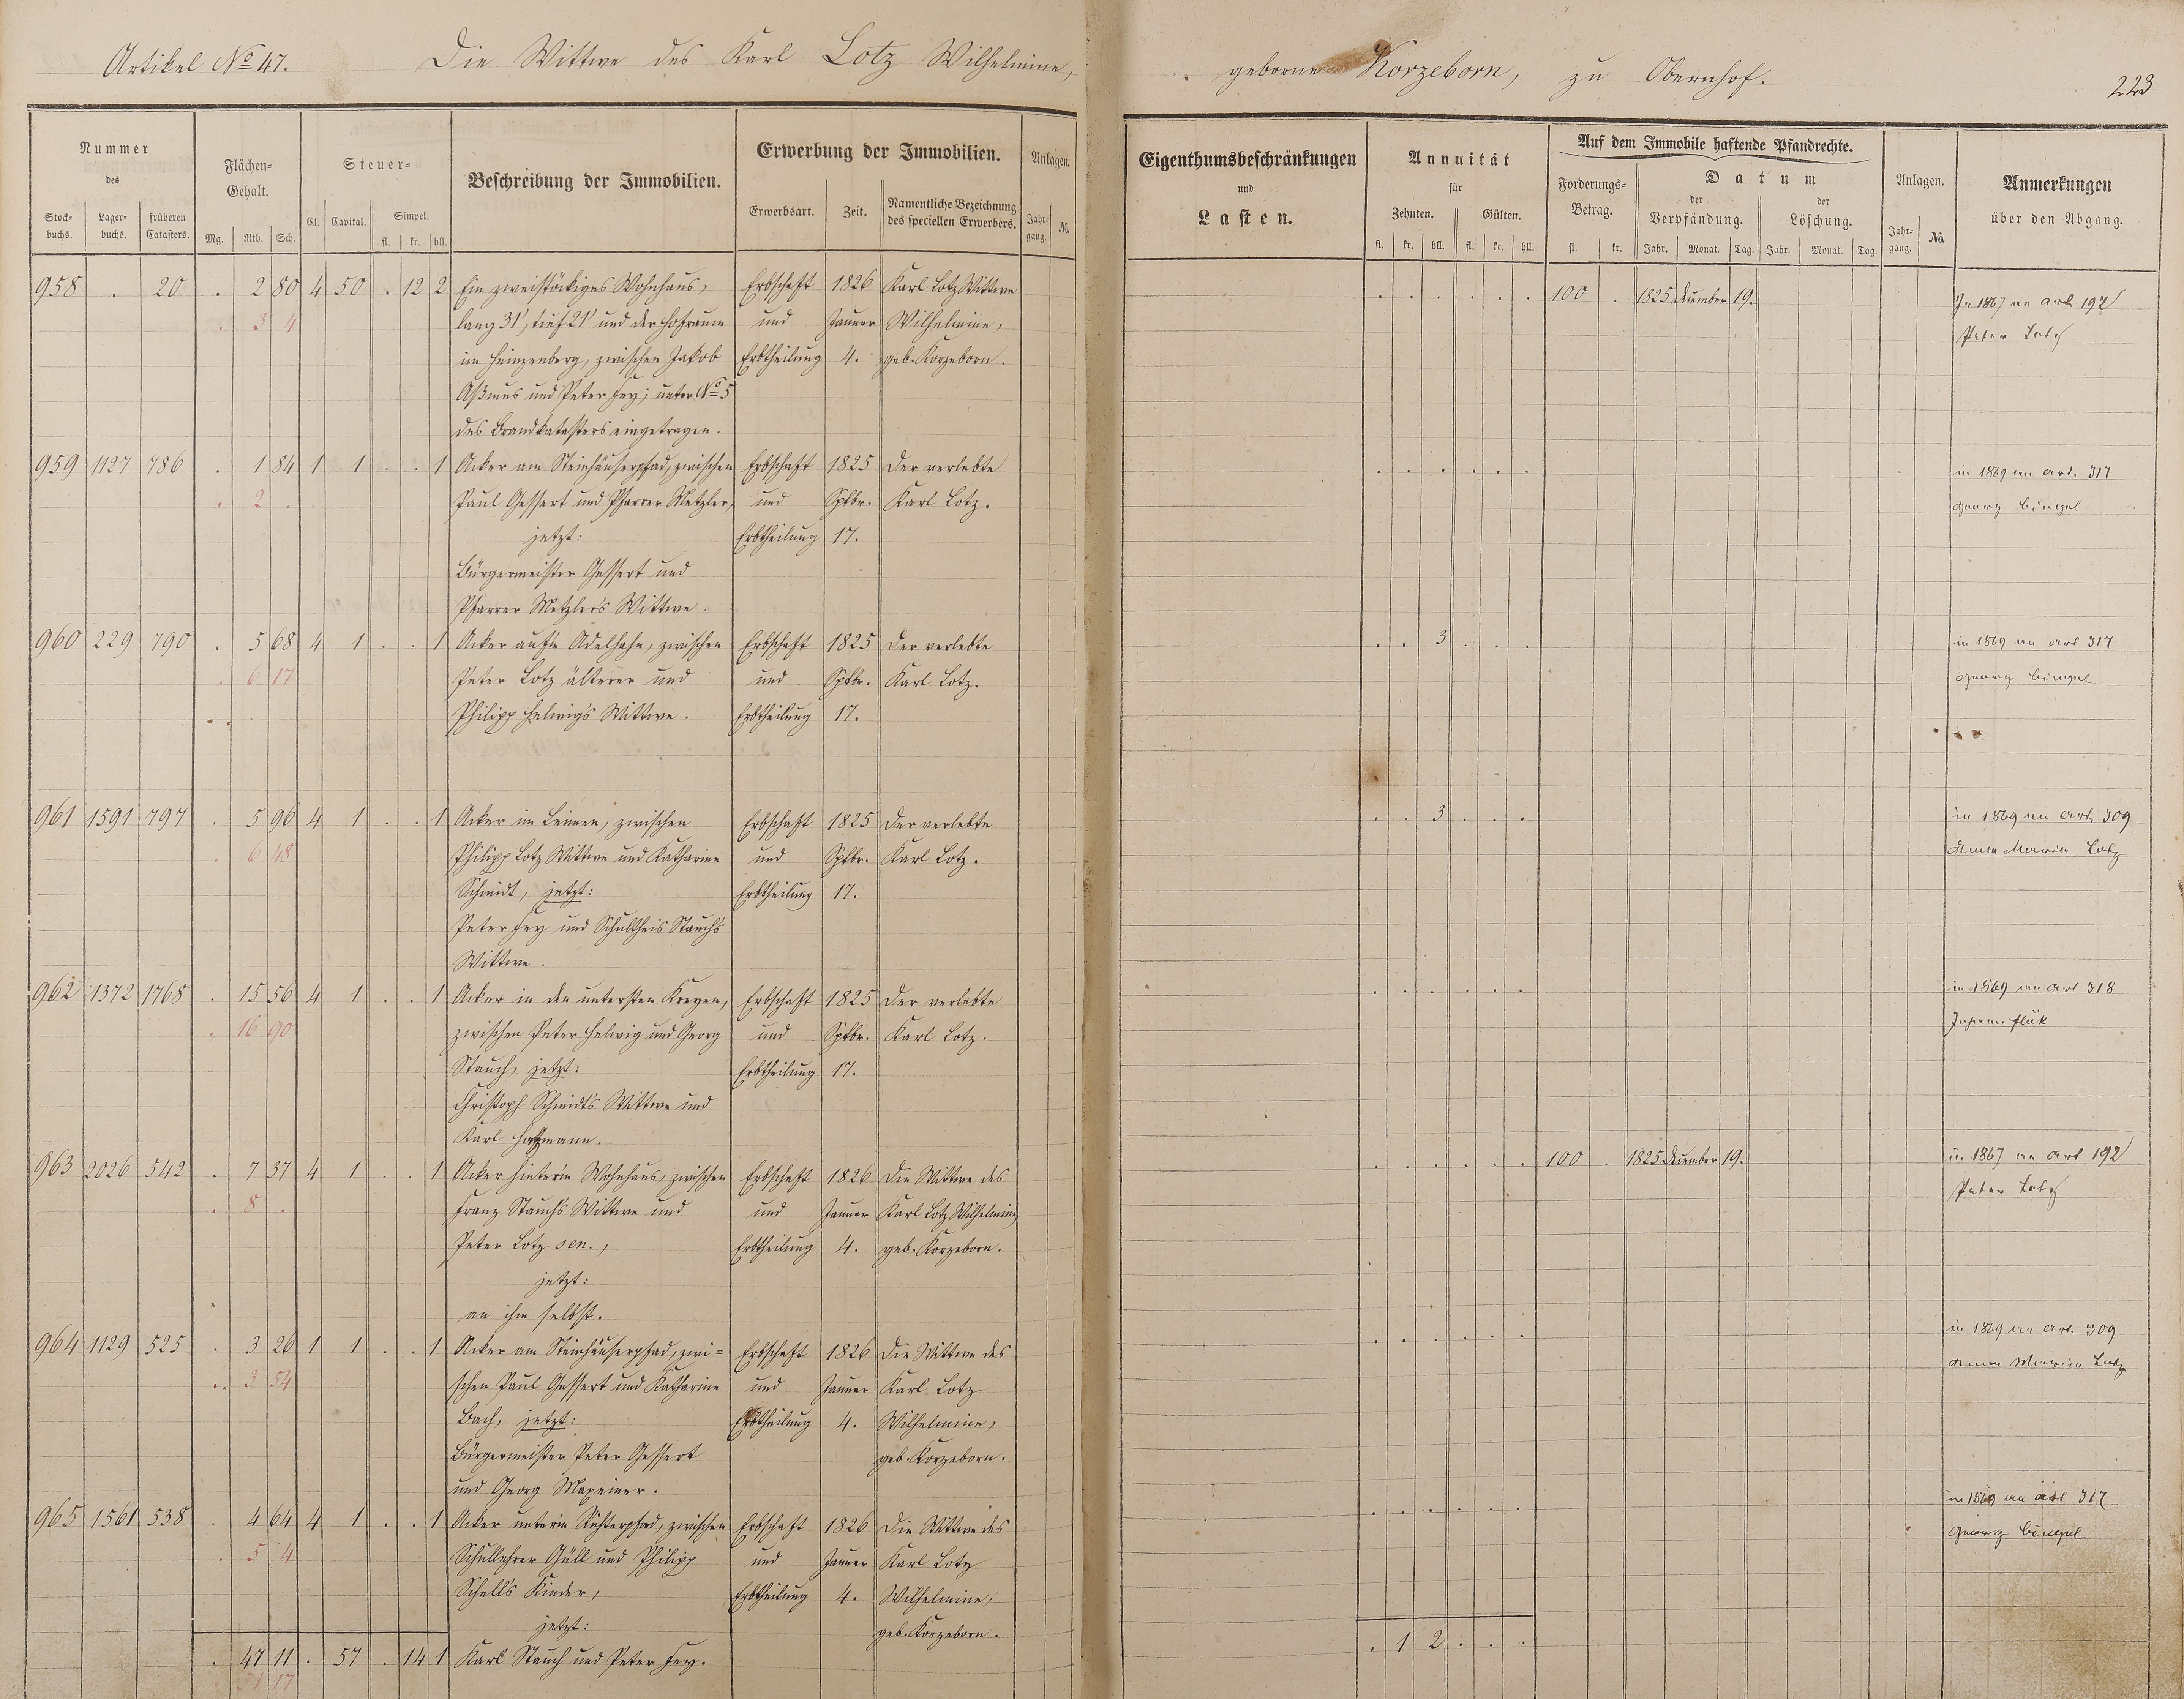 Artikel No 47. Die Wittwe des Karl Lotz Wilhelmine,
geborne Korzeborn, zu Obernhof.
223
Nummer
des
Stock-
buchs.
Lager-
buchs.
früheren
Catasters.
Flächen-
Gehalt.
Mg. Rth. Sch.
Steuer-
Cl. Capital. Simpel.
fl. kr. hll.
Beschreibung der Immobilien.
Erwerbung der Immobilien.
Erwerbsart. Zeit. Namentliche Bezeichnung
des speciellen Erwerbers.
Anlagen.
Jahr-
gang. No
Eigenthumsbeschränkungen
und
Lasten.
Annuität
für
Zehnten. Gülten.
fl. kr. hll. fl. kr. hll.
Auf dem Immobile haftende Pfandrechte.
Forderungs-
Betrag.
fl. kr.
Datum
der
Verpfändung.
der
Löschung.
Jahr. Monat. Tag. Jahr. Monat. Tag.
Anlagen.
Jahr-
gang. No
Anmerkungen
über den Abgang.
958 . 20 . 2 80 4 50 . 12 2 Ein zweistöckiges Wohnhaus, Erbschaft 1826 Karl Lotz Wittwe . . . . . . 100 . 1825 December 19. In 1867 an art 192
. 3 4 lang 31', tief 21' und der Hofraum und Januer Wilhelmine, Peter Lotz
im Heinzenberg, zwischen Jakob Erbtheilung 4. geb. Korzeborn.
Aßmus und Peter Fey; unter No 5
des Brandkatasters eingetragen.
959 1127 786 . 1 84 1 1 . . 1 Acker am Steinhäuserpfad, zwischen Erbschaft 1825 Der verlebte . . . . . . in 1869 an art. 317
. 2 . Paul Gessert und Pfarrer Metzler, und Sptbr. Karl Lotz. Georg Bingel
jetzt: Erbtheilung 17.
Bürgermeister Gessert und
Pfarrer Metzlers Wittwe.
960 229 790 . 5 68 4 1 . . 1 Acker auf'm Adelshahn, zwischen Erbschaft 1825 Der verlebte . . 3 . . . in 1869 an art 317
. 6 17 Peter Lotz älterer und und Sptbr. Karl Lotz. Georg Bingel
Philipp Helwig's Wittwe. Erbtheilung 17.
961 1591 797 . 5 96 4 1 . . 1 Acker im Leimen, zwischen Erbschaft 1825 Der verlebte . . 3 . . . in 1869 an art. 309
. 6 48 Philipp Lotz Wittwe und Katharine und Sptbr. Karl Lotz. Anna Maria Lotz
Schmidt, jetzt: Erbtheilung 17.
Peter Fey und Schultheis Stauch's
Wittwe.
962 1372 1768 . 15 56 4 1 . . 1 Acker in den untersten Erbschaft 1825 Der verlebte . . . . . . in 1869 an art 318
. 16 90 zwischen Peter Helwig und Georg und Sptbr. Karl Lotz.
Stauch, jetzt: Erbtheilung 17.
Christoph Schmidt's Wittwe und
Karl
963 2026 542 . 7 37 4 1 . . 1 Acker hinter'm Wohnhaus, zwischen Erbschaft 1826 Die Wittwe des . . . . . . 100 . 1825 December 19. in 1867 an art 192
. 8 . Franz Stauch's Wittwe und und Januer Karl Lotz Wilhelmine, Peter Lotz
Peter Lotz sen., Erbtheilung 4. geb. Korzeborn.
jetzt:
an ihm selbst.
964 1129 525 . 3 26 1 1 . . 1 Acker am Steinhäuserpfad, zwi= Erbschaft 1826 Die Wittwe des . . . . . . in 1869 an art. 309
. 3 54 schen Paul Gessert und Katharine und Januer Karl Lotz Anna Maria Lotz
Bach, jetzt: Erbtheilung 4. Wilhelmine,
Bürgermeister Peter Gessert geb. Korzeborn.
und Georg Mapeiner.
965 1561 538 . 4 64 4 1 . . 1 Acker unter'm zwischen Erbschaft 1826 Die Wittwe des . . . . . . in 1869 an art 317
. 5 4 Schullehrer Güll und Philipp und Januer Karl Lotz Georg Bingel
Schell's Kinder, Erbtheilung 4. Wilhelmine,
jetzt: geb. Korzeborn.
. 47 11 . 57 . 14 1 Karl Stauch und Peter Fey. . 1 2 . . .
17